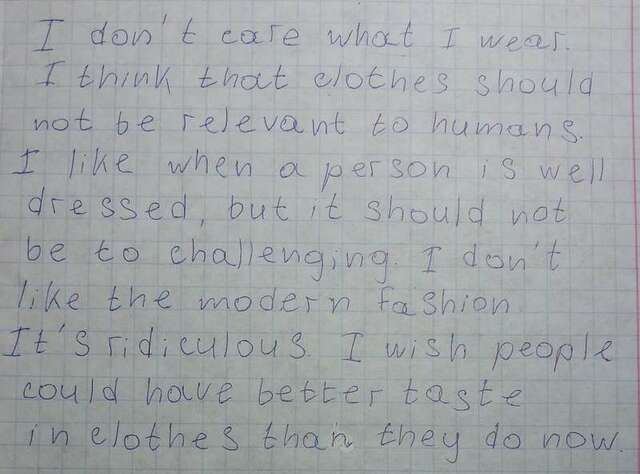 I don't care what I wear.
I think that clothes should
not be relevant to humans.
I like when a person is well
dressed, but it should not
be to challenging. I don't
like the modern fashion
It's ridiculous. I wish people
could have better taste
in clothes than they do now.